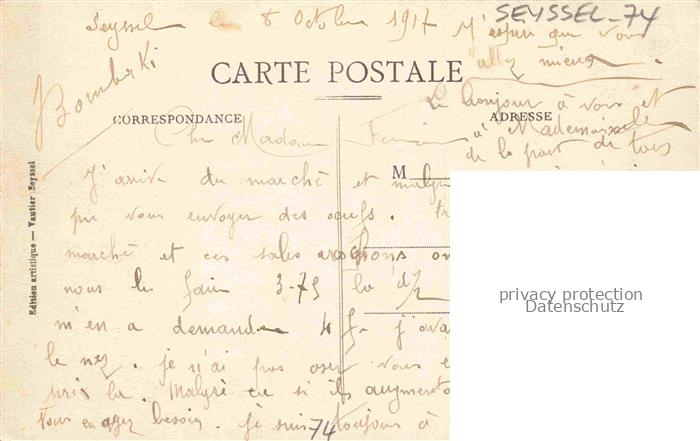 SEYSSEL-74
Seyssel le 8 Octobre 1917
J'espère que vous
allez mieux.
Bombski
CARTE POSTALE
Le bonjour à vous et
à Mademoiselle
de la part de tous
CORRESPONDANCE
ADRESSE
Chère Madame
M
J'arrive du marché et malgré
pu vous envoyer des oeufs.
marché et ces sales
nous les faire 3-75 la dz
m'en a demandé 4 f. j'avais
le nez. je n'ai pas osé vous
pris la. Malgré
si ils augmente
Vous en avez besoin. je suis toujours à
74
Edition artistique — Vautier Seyssel
privacy protection
Datenschutz